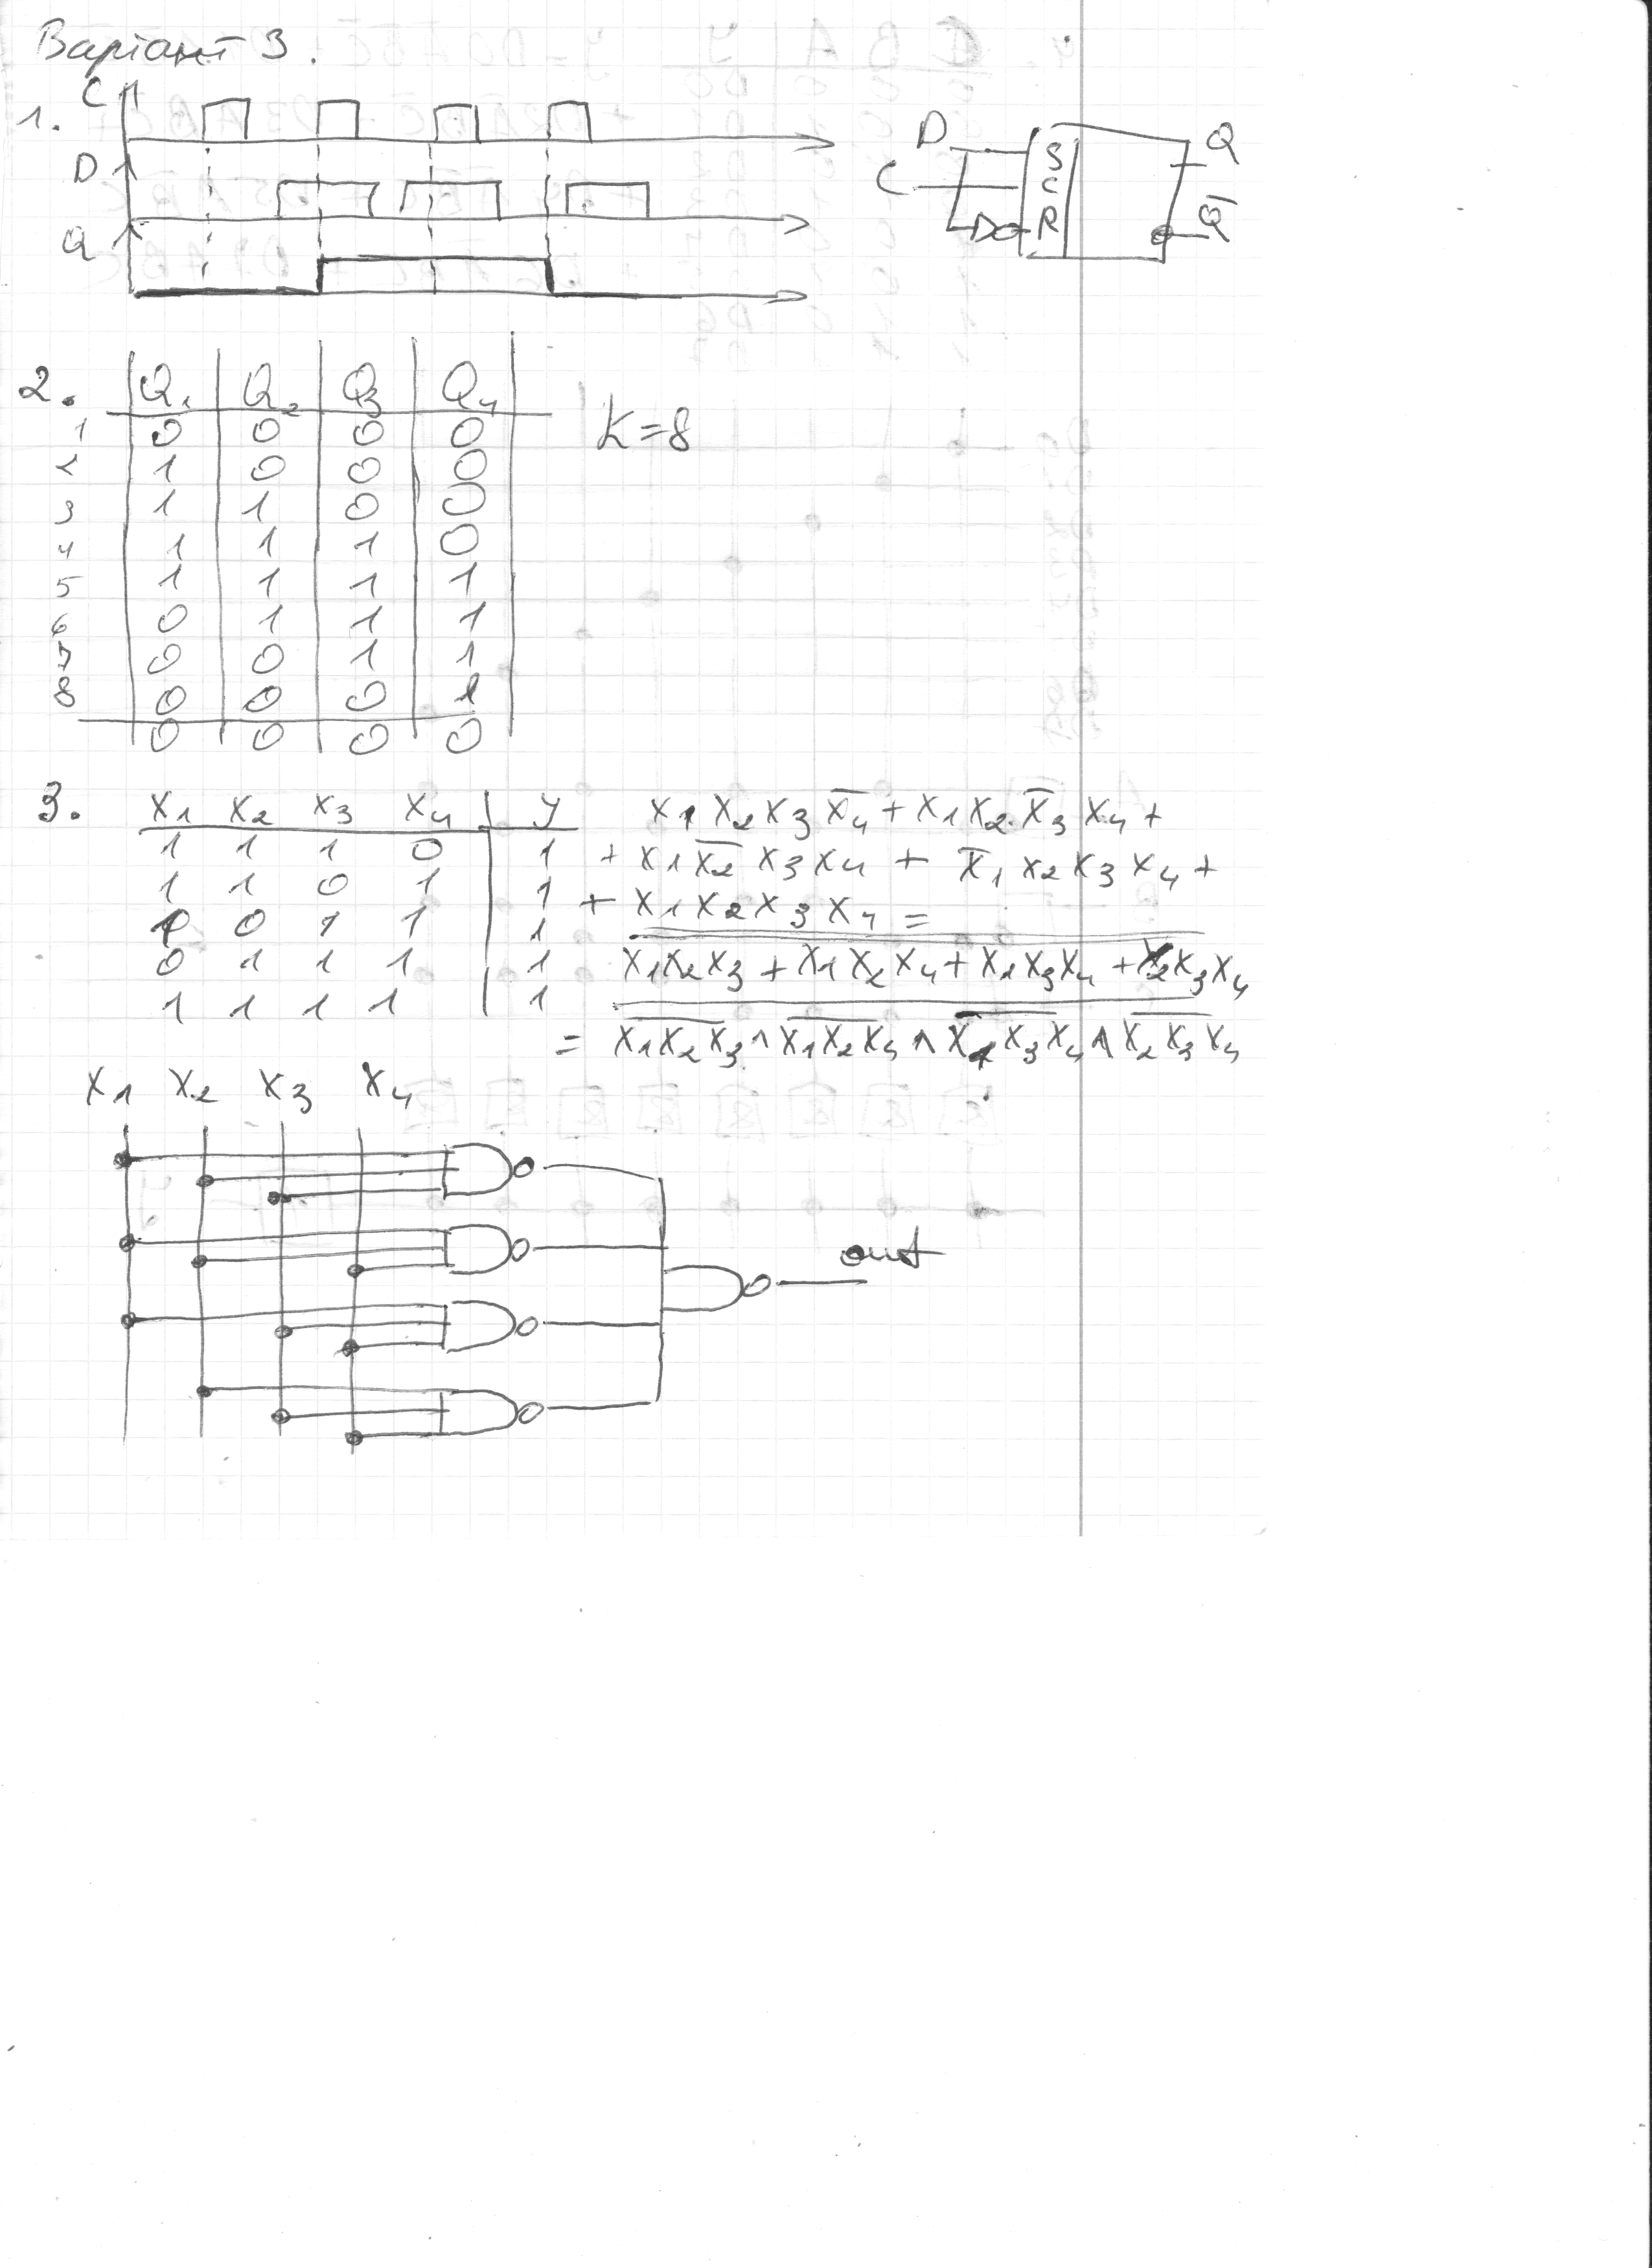 Варіант 3.
1.
C
D
Q
D
C
S
C
R
Q
Q̅
2.
Q₁ Q₂ Q₃ Q₄
K=8
1 0 0 0 0
2 1 0 0 0
3 1 1 0 0
4 1 1 1 0
5 1 1 1 1
6 0 1 1 1
7 0 0 1 1
8 0 0 0 1
0 0 0 0
3.
x₁ x₂ x₃ x₄ y
1 1 1 0 1
1 1 0 1 1
1 0 1 1 1
0 1 1 1 1
1 1 1 1 1
x₁x₂x₃x̅₄ + x₁x₂x̅₃x₄ +
+ x₁x̅₂x₃x₄ + x̅₁x₂x₃x₄ +
+ x₁x₂x₃x₄ =
x₁x₂x₃ + x₁x₂x₄ + x₁x₃x₄ + x₂x₃x₄
= x₁x₂x₃ ∧ x₁x₂x₄ ∧ x₁x₃x₄ ∧ x₂x₃x₄
x₁ x₂ x₃ x₄
out